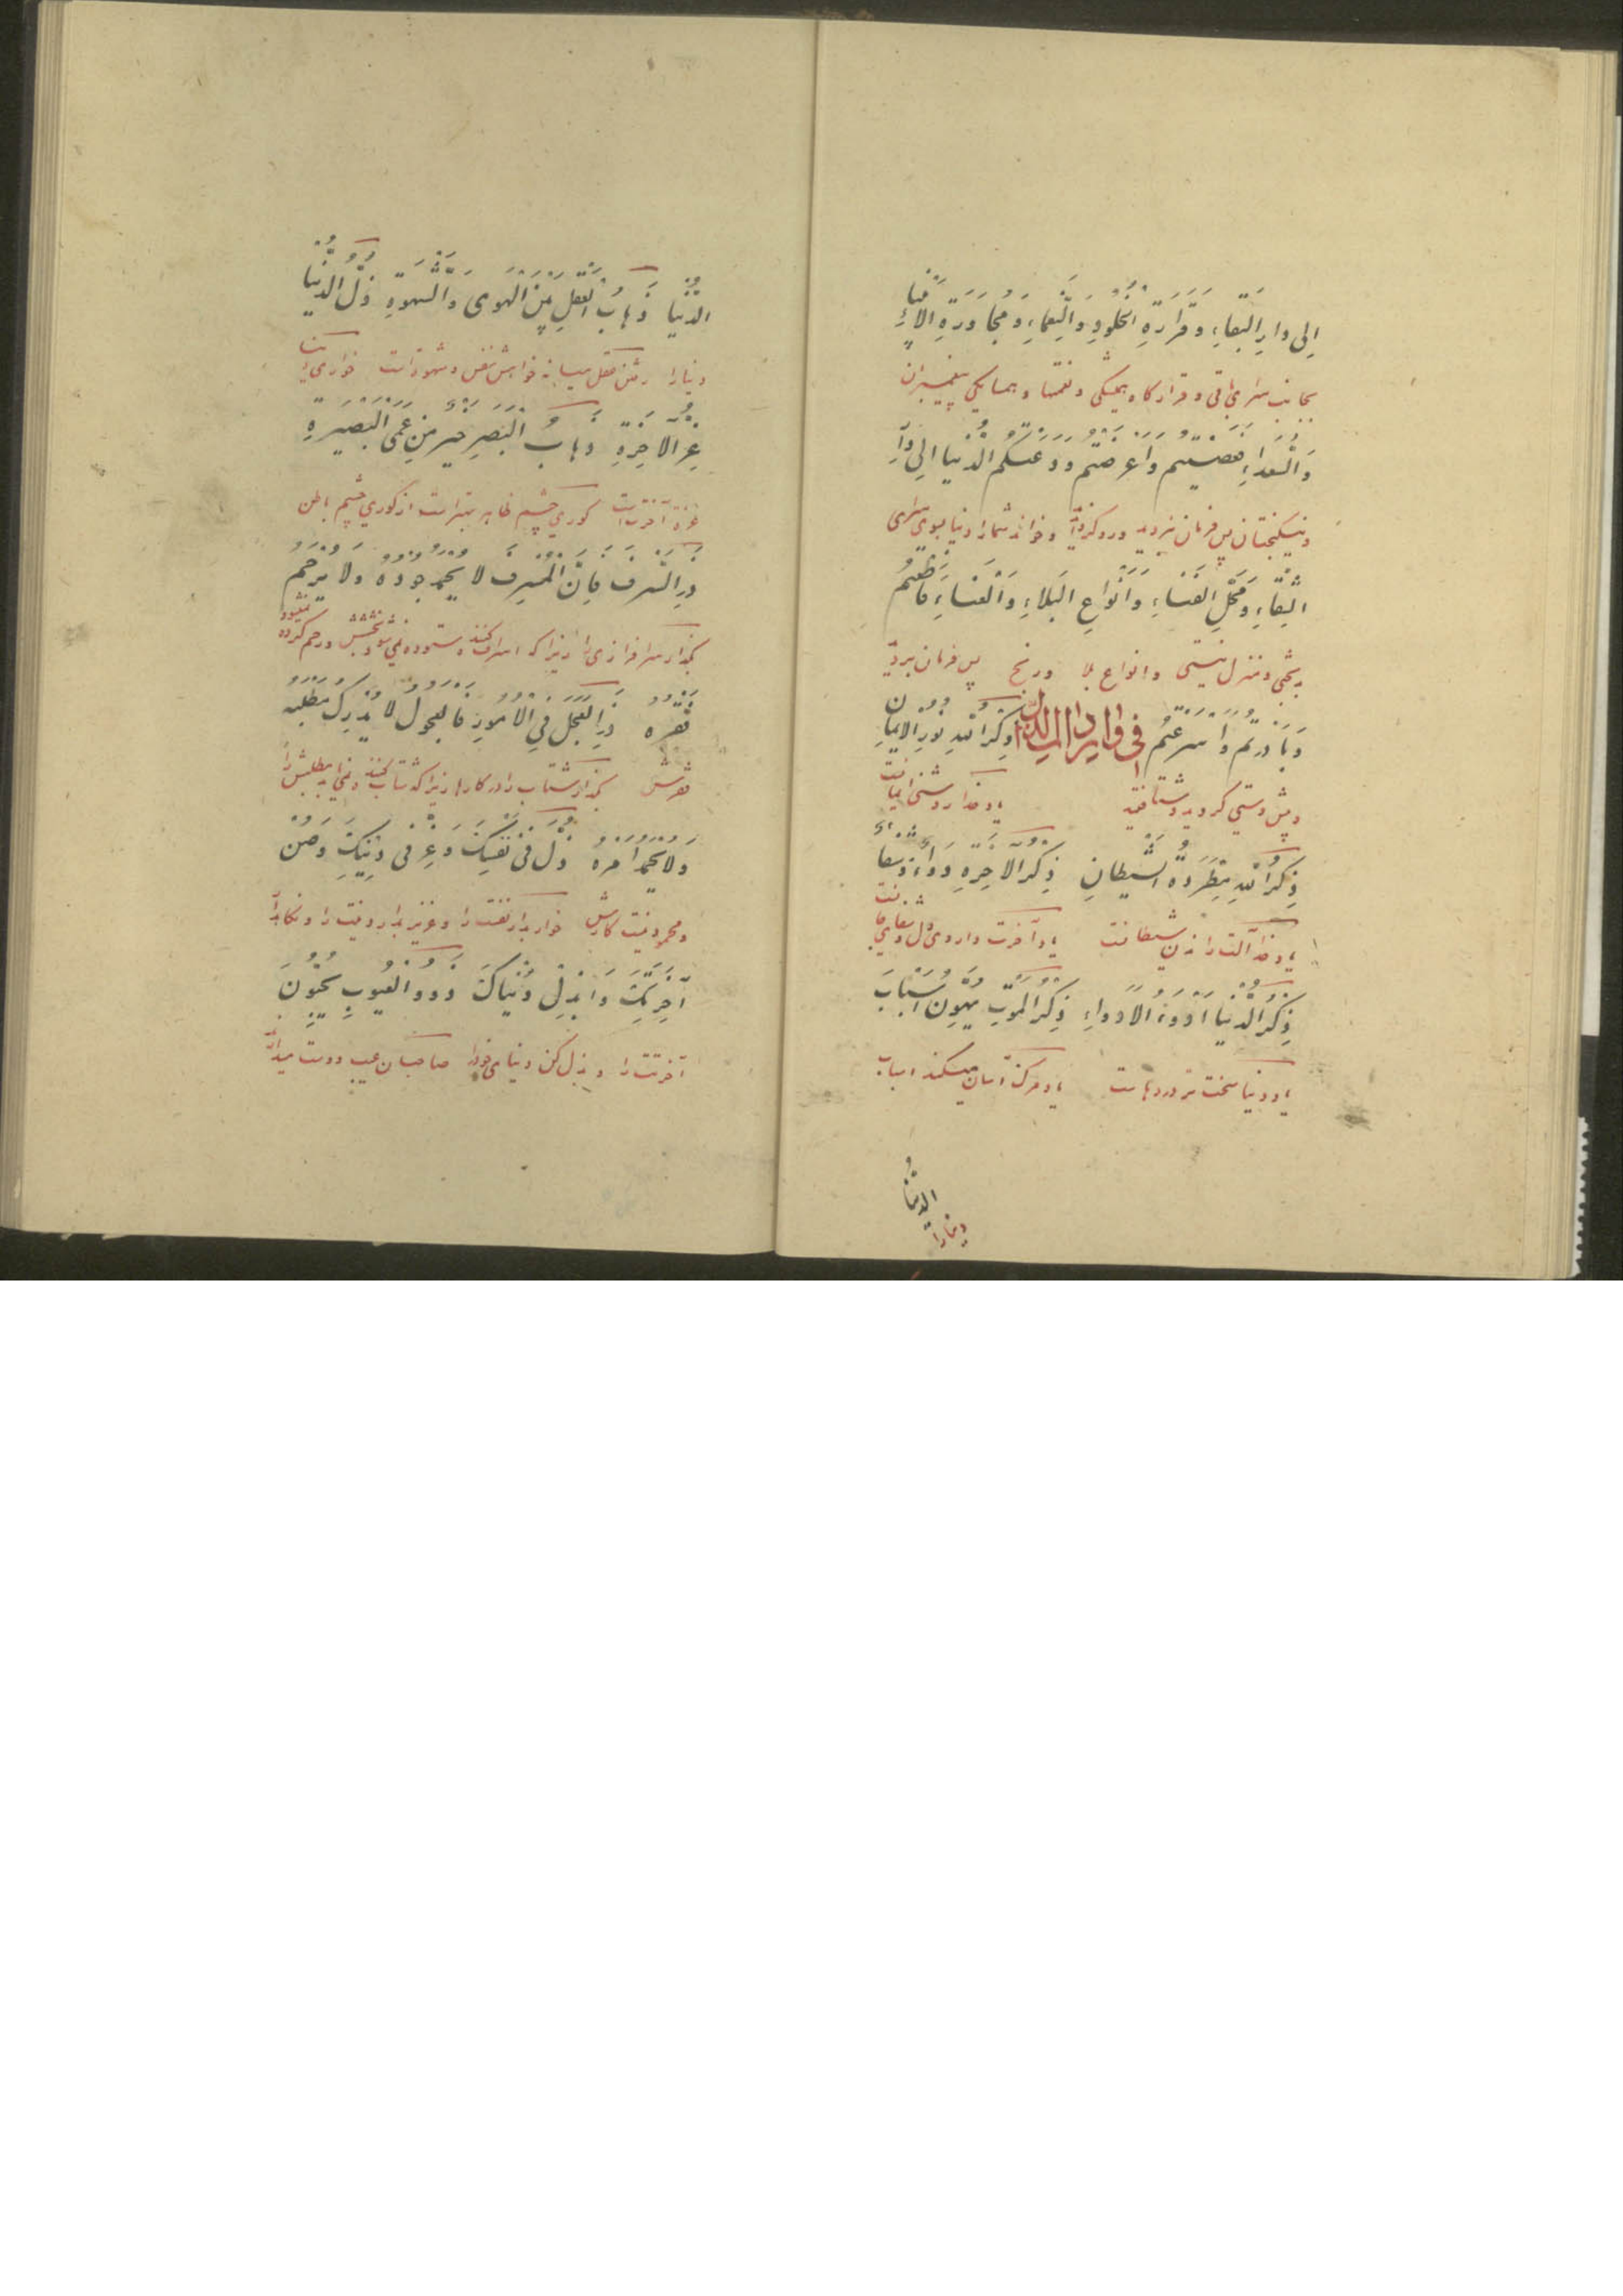 اِلی دارِ البَقاءِ وَقَرارَةِ الخُلُودِ وَالنَّعماءِ وَمُجاوَرَةِ الاَنبِیاءِ
بجانب سرای باقی و قرارگاه همیشگی و نعمتها و همسایگی پیغمبران
وَالسُّعَداءِ فَعَصَیتُم وَاَعرَضتُم وَدَعَتکُم الدُّنیا اِلی دارِ
و نیکبختان پس فرمان نبردید و رو کردانید و خواند شما را دنیا بسوی سرای
الشَّقاءِ وَمَحَلِّ الفَناءِ وَاَنواعِ البَلاءِ وَالعَناءِ فَاَطَعتُم
بدبختی و منزل نیستی و انواع بلا و رنج پس فرمان بردید
وَبادَرتُم وَاَسرَعتُم فی ذکر الله نُورُ الایمانِ
و پیش دستی کردید و شتافتید یاد خدا روشنی ایمانست
ذِکرُ اللّهِ مَطرَدَةُ الشَّیطانِ ذِکرُ الاخِرَةِ دَواءٌ وَشِفاءٌ
یاد خدا آلت راندن شیطانست یاد آخرت داروی دل و شفای جانست
ذِکرُ الدُّنیا اَدوَءُ الاَدواءِ ذِکرُ المَوتِ یُهَوِّنُ اَسبابَ
یاد دنیا سخت‌تر دردهاست یاد مرگ آسان میکند اسباب
الدُّنیا
دنیا را
الدُّنیا ذَهابُ العَقلِ بَینَ الهَوی وَالشَّهوَةِ ذُلُّ الدُّنیا
دنیا را رفتن عقل میانه خواهش نفس و شهوتست خواری دنیا
عِزُّ الاخِرَةِ ذَهابُ البَصَرِ خَیرٌ مِن عَمَی البَصیرَةِ
عزت آخرتست کوری چشم ظاهر بهتر است از کوری چشم باطن
ذَرِ السَّرَفَ فَاِنَّ المُسرِفَ لا یُحمَدُ جُودُهُ وَلا یُرحَمُ
بگذار سرافرازی را زیرا که اسراف کننده ستوده نمی‌شود بخشش و رحم کرده نمیشود
فَقرُهُ ذَرِ العَجَلَ فِی الاُمُورِ فَالعَجُولُ لا یُدرِکُ مَطلَبَهُ
فقرش بگذار شتاب را در کارها زیرا که شتاب کننده درنمی‌یابد مطلبش را
وَلا یُحمَدُ اَمرُهُ ذُلَّ فی نَفسِکَ وَعِزَّ فی دینِکَ وَصُن
و محمود نیست کارش خوار بدار نفست را و عزیز بدار دینت را و نگاه‌دار
آخِرَتَکَ وَابذِل دُنیاکَ ذَوُو العُیُوبِ یُحِبُّونَ
آخرتت را و بذل کن دنیای خود را صاحبان عیب دوست میدارند